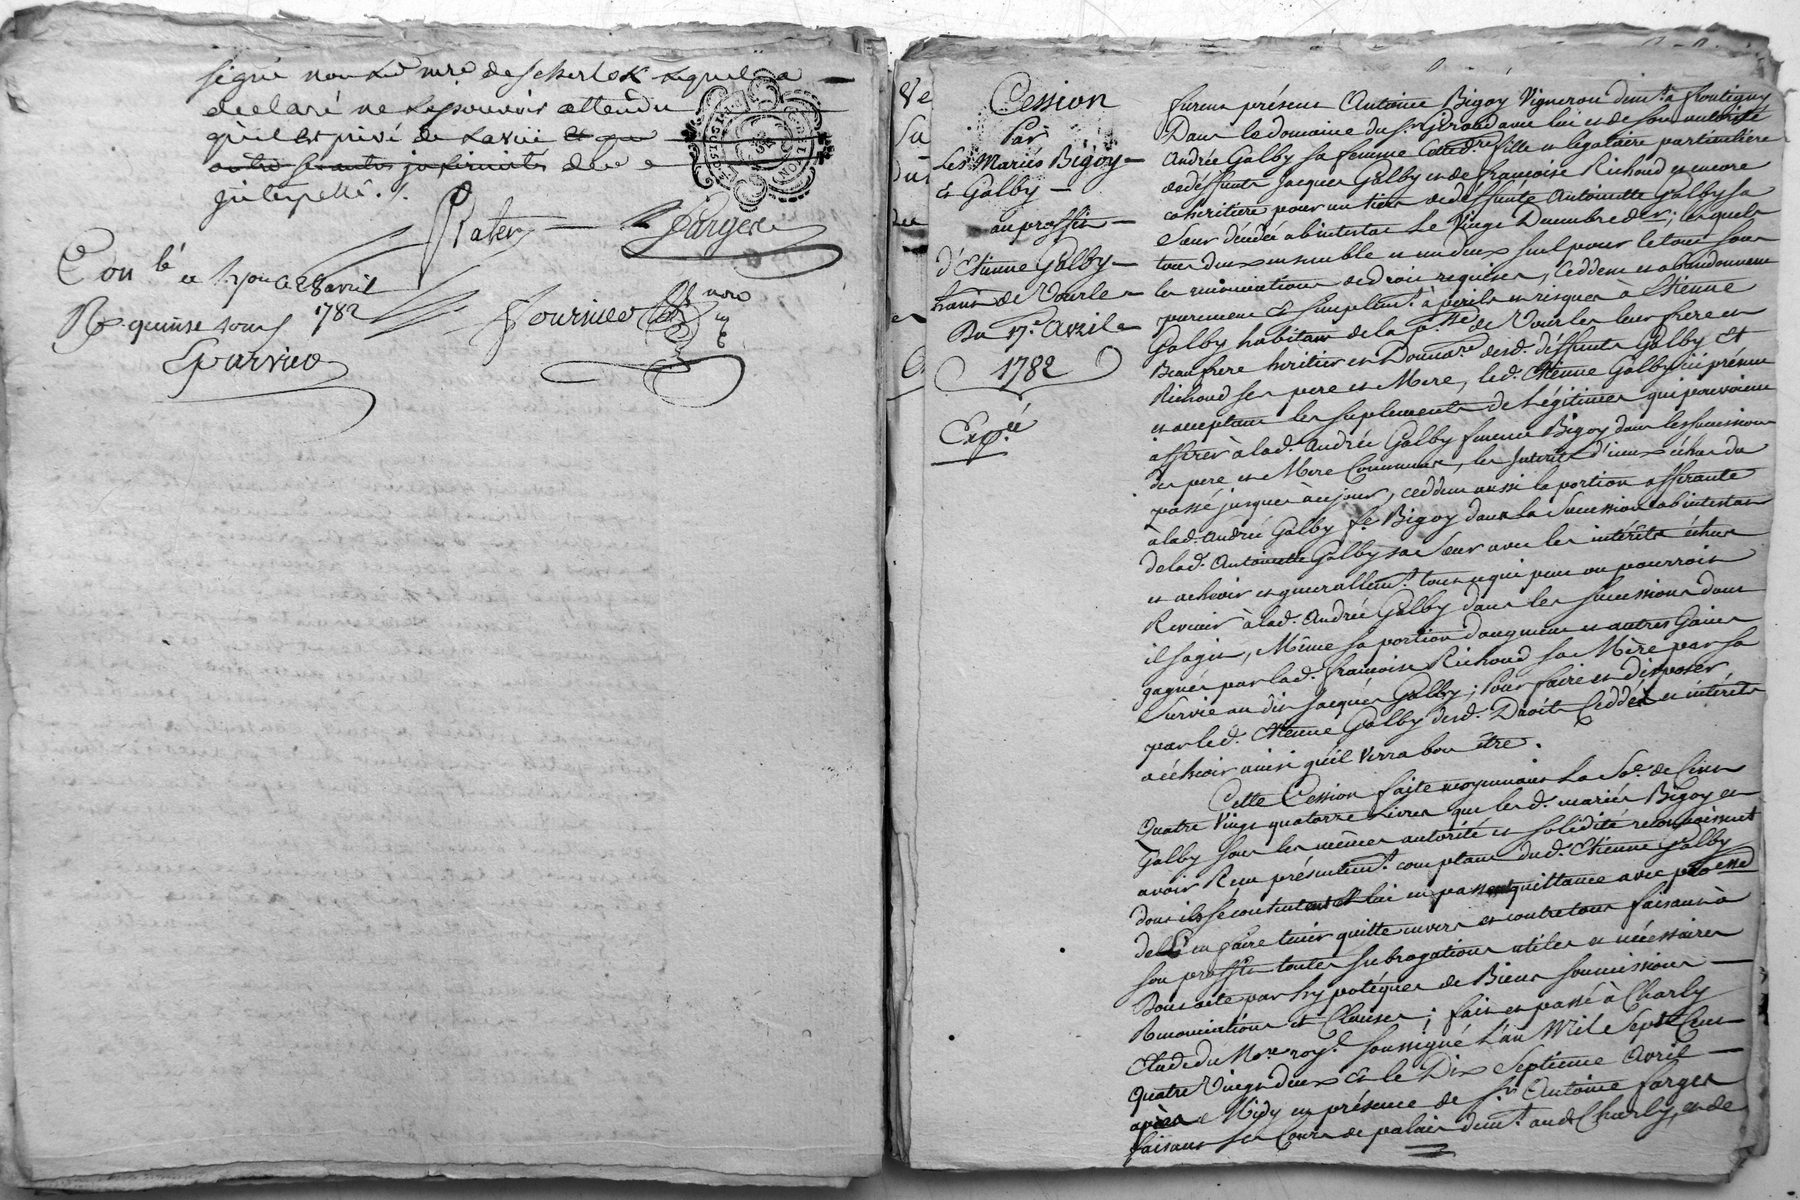 signé non led. mre de Scherlok lequel a
déclaré ne le pouvoir attendu
qu'il est privé de la vüe et ou
autre infirmités de ce
interpellé ./.
Farges
Con lé a Lyon le 28 avril
1782
R. quinze sous
Fournier
nore
Cession
Par
Les Mariés Bigoy
et Galby
au proffit
d'Etienne Galby
hant de Vourles
Du 17e Avril
1782
Expée
furent présents Antoine Bigoy Vigneron demt. à
Dans le domaine du sr. Giraud avec lui et de son autorité
Andrée Galby sa femme Ville en légataire particuliere
de déffunts Jacques Galby et de françoise Richoud et encore
cohéritiere pour un tiers de déffunte Antoinette Galby sa
Sœur décédée abintestat Le Vingt Decembre der; lesquels
tous deux ensemble et un deux seul pour le tout sous
les renonciations de droit requises, Ceddent et abandonnent
purement et simplemt. à perils et risques à Etienne
Galby habitant de la psse de Vourles leur frere et
Beaufrere heritier en Donnatre desd. déffunts Galby et
Richoud ses pere et Mere, led. Etienne Galby ici présent
et acceptant les suplements de Légitimes, qui peuvoient
afférer à lad. Andrée Galby femme Bigoy dans les successions
des pere et Mere Communs, les Interets d'iceux échus du
passé jusques à ce jour, ceddent aussi la portion afférante
à lad. Andrée Galby fe. Bigoy dans la Succession abintestat
de lad. Antoinette Galby sa Sœur avec les intérêts échus
et acheoir et generallemt. tout ce qui peut ou pourroit
Revenir à lad. Andrée Galby dans les successions dont
il s'agit, Même sa portion d'augment et autres Gains
gagnés par lad. françoise Richoud sa Mère par sa
Survie au dit Jacques Galby; Pour faire et disposer
par led. Etienne Galby desd. Droits Ceddés et intérêts
a écheoir ainsi qu'il Verra bon être.
Cette Cession faite moyennant La Soe. de Cent
Quatre Vingt quatorze Livres que lesd. mariés Bigoy et
Galby sous les mêmes autorité et solidité reconnoissent
avoir Reçu présentemt. comptant dud. Etienne Galby
dont ils se contentent et lui en passent quittance avec promesse
de L'en faire tenir quitte envers et contre tous faisant à
son proffit toutes subrogations utiles et nécessaires
Dont acte par hypotéques de Biens soumissions
Renonciations et Clauses; fait et passé à Charly
Etude du Nore. royl. soussigné L'an Mil Sept Cent
Quatre Vingt deux et le Dix Septieme Avril
après Midy en présence de sr. Antoine farges
faisant ses Cours de palais demt. aud. Charly, et de